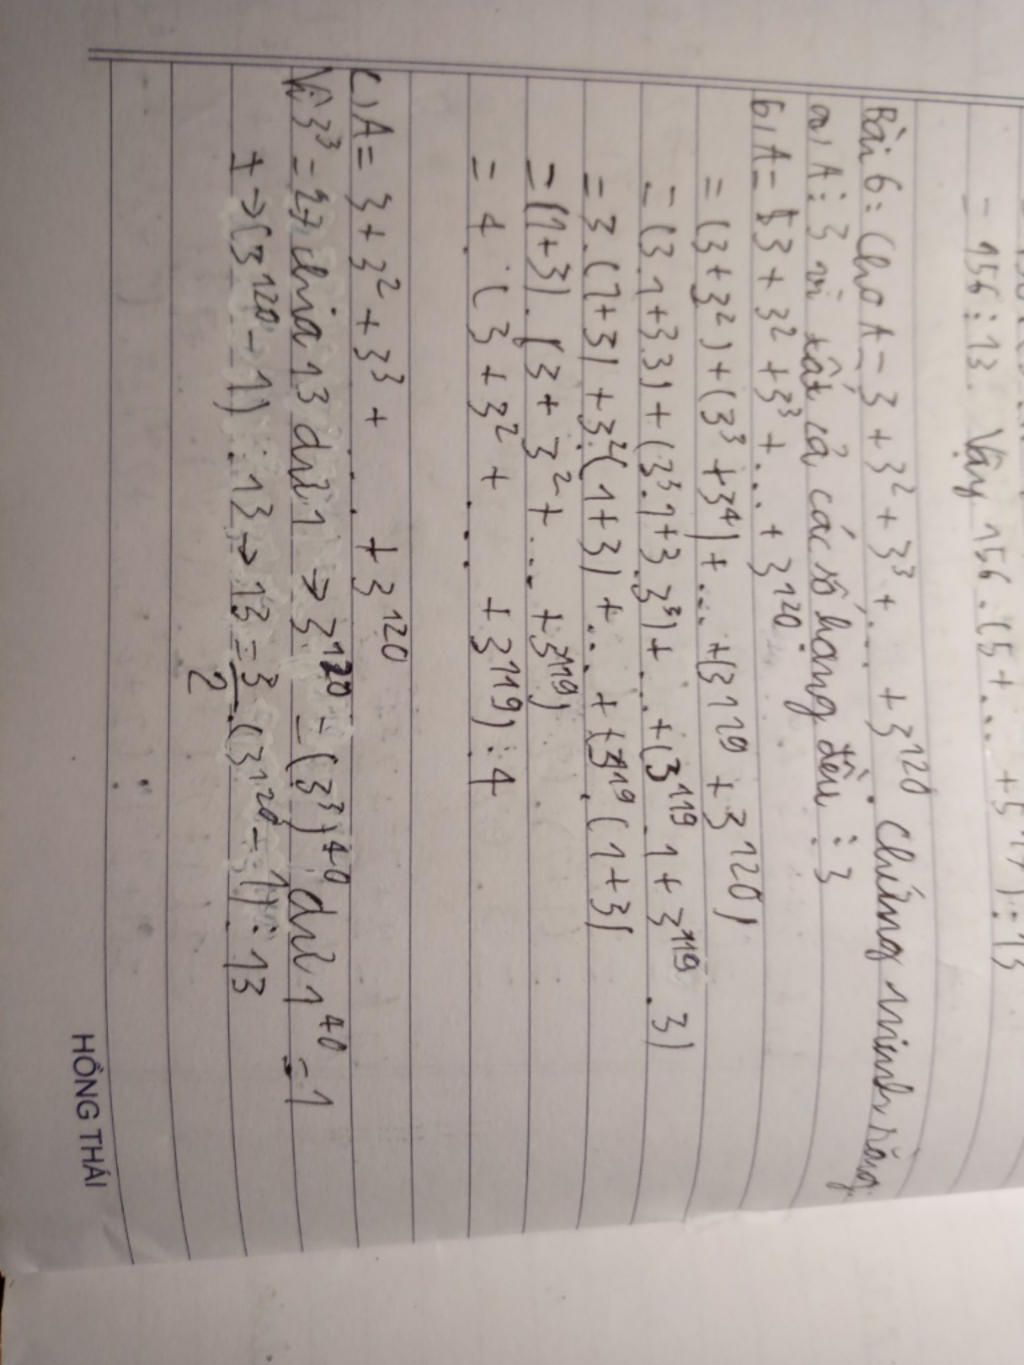 = 156 ⋮ 13. Vậy 156.(5+... +5¹¹⁷) ⋮ 13
Bài 6: Cho A = 3 + 3² + 3³ + ... + 3¹²⁰. Chứng minh rằng
a) A ⋮ 3 vì tất cả các số hạng đều ⋮ 3
b) A = 3 + 3² + 3³ + ... + 3¹²⁰
= (3 + 3²) + (3³ + 3⁴) + ... + (3¹¹⁹ + 3¹²⁰)
= (3.1 + 3.3) + (3³.1 + 3.3³) + ... + (3¹¹⁹.1 + 3¹¹⁹.3)
= 3.(1+3) + 3²(1+3) + ... + 3¹¹⁹(1+3)
= (1+3).(3 + 3² + ... + 3¹¹⁹)
= 4.(3 + 3² + ... + 3¹¹⁹) ⋮ 4
c) A = 3 + 3² + 3³ + ... + 3¹²⁰
Vì 3³ = 27 chia 13 dư 1 → 3¹²⁰ = (3³)⁴⁰ dư 1⁴⁰ = 1
+ → (3¹²⁰ - 1) ⋮ 13 → 13 = 3/2.(3¹²⁰ - 1) ⋮ 13
HỒNG THÁI